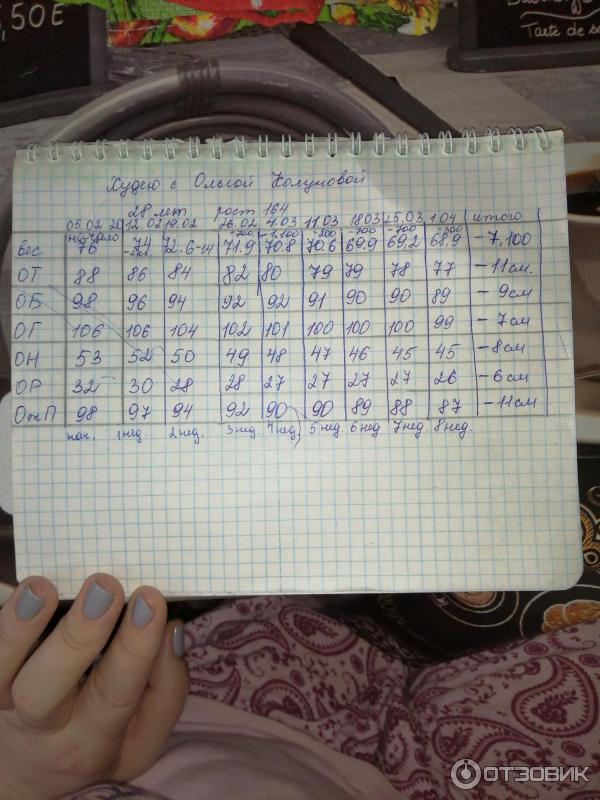 ,50€
Tarte de s
Худею с Ольгой Колуновой
28 лет рост 164
05.02 12.02 19.02 26.02 4.03 11.03 18.03 25.03 1.04 итого
начало -700 -1,100 -200 -700 -700 -300
Вес 76 74 72.6 71.9 70.8 70.6 69.9 69,2 68.9 -7,100
ОТ 88 86 84 82 80 79 79 78 77 -11см.
ОБ 98 96 94 92 92 91 90 90 89 -9см
ОГ 106 106 104 102 101 100 100 100 99 -7см
ОН 53 52 50 49 48 47 46 45 45 -8см
ОР 32 30 28 28 27 27 27 27 26 -6см
98 97 94 92 90 90 89 88 87 -11см
нач. 1нед. 2нед. 3нед. 4нед. 5нед. 6нед 7нед. 8нед.
ОТЗОВИК